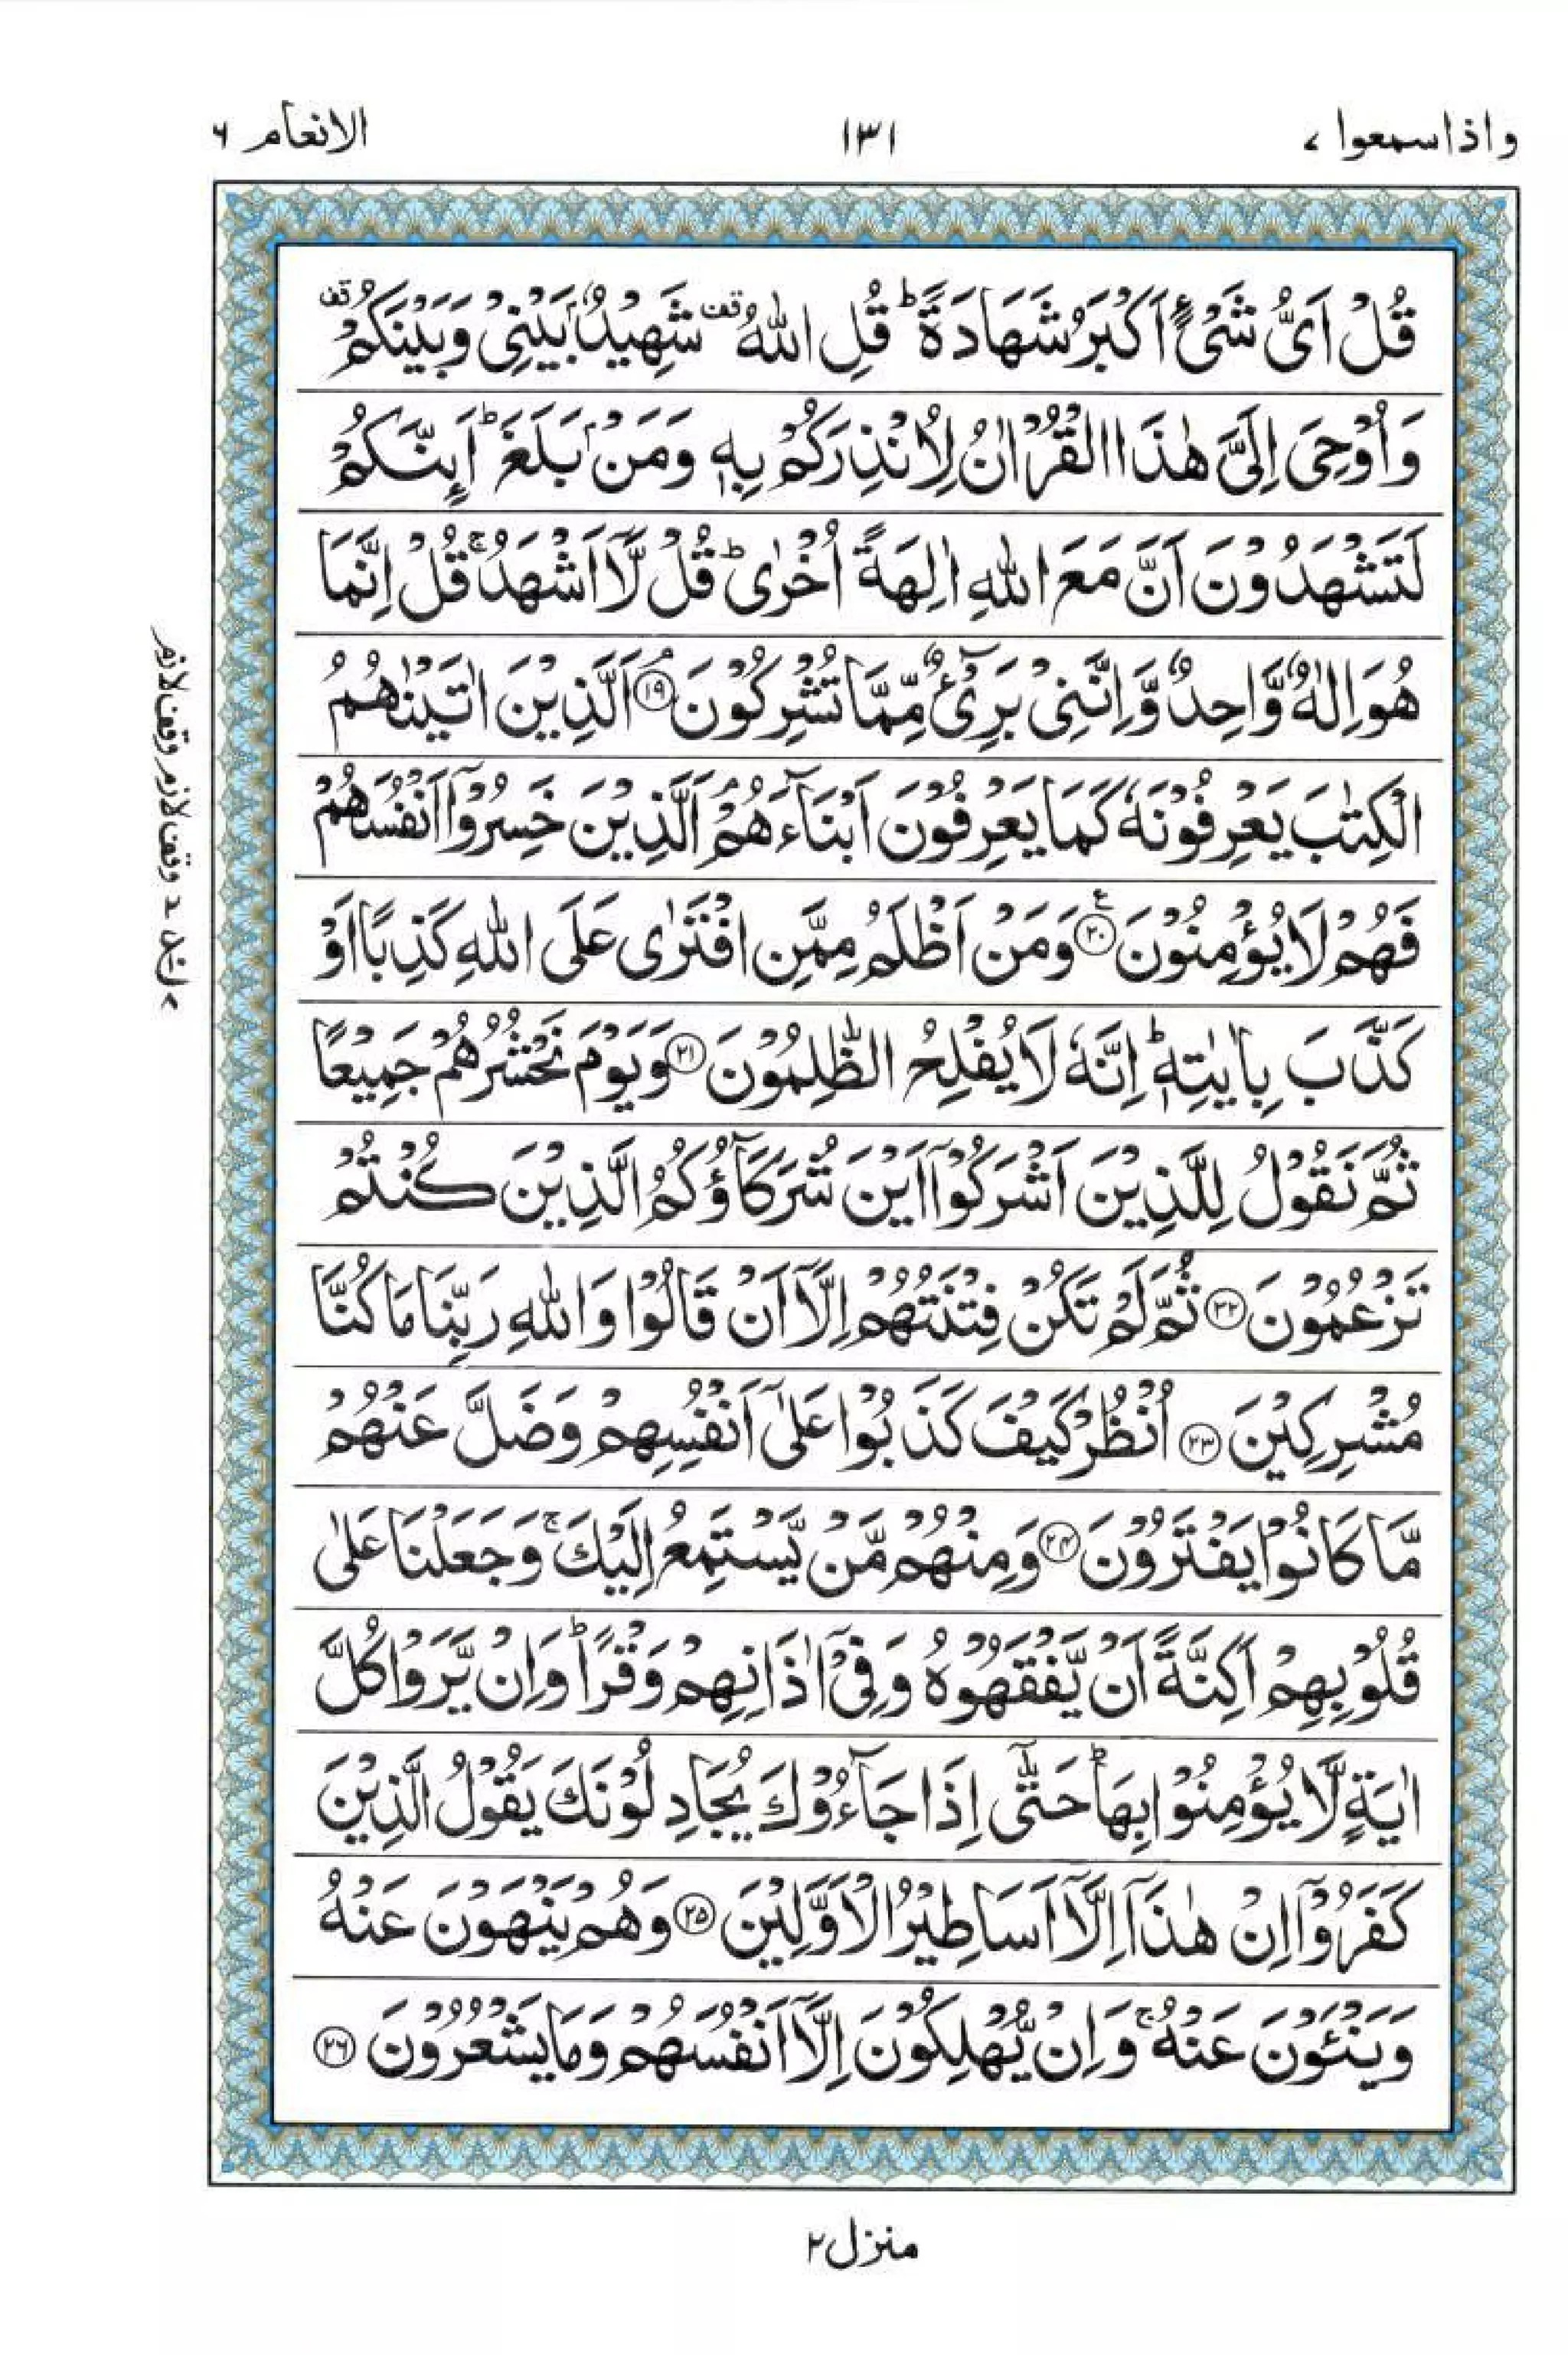 واذاسمعوا ۷
۱۳۱
الانعام ۶
قُلْ اَیُّ شَیْءٍ اَكْبَرُ شَهَادَةً ؕ قُلِ اللّٰهُ ۫ قف شَهِیْدٌۢ بَیْنِیْ وَبَیْنَكُمْ ۫ قف
وَاُوْحِیَ اِلَیَّ هٰذَا الْقُرْاٰنُ لِاُنْذِرَكُمْ بِهٖ وَمَنْۢ بَلَغَ ؕ اَىِٕنَّكُمْ
لَتَشْهَدُوْنَ اَنَّ مَعَ اللّٰهِ اٰلِهَةً اُخْرٰی ؕ قُلْ لَّاۤ اَشْهَدُ ۚ قُلْ اِنَّمَا
هُوَ اِلٰهٌ وَّاحِدٌ وَّاِنَّنِیْ بَرِیْٓءٌ مِّمَّا تُشْرِكُوْنَ ۘ ﴿۱۹﴾ اَلَّذِیْنَ اٰتَیْنٰهُمُ
الْكِتٰبَ یَعْرِفُوْنَهٗ كَمَا یَعْرِفُوْنَ اَبْنَآءَهُمْ ۘ اَلَّذِیْنَ خَسِرُوْۤا اَنْفُسَهُمْ
فَهُمْ لَا یُؤْمِنُوْنَ ۧ ﴿۲۰﴾ وَمَنْ اَظْلَمُ مِمَّنِ افْتَرٰی عَلَی اللّٰهِ كَذِبًا اَوْ
كَذَّبَ بِاٰیٰتِهٖ ؕ اِنَّهٗ لَا یُفْلِحُ الظّٰلِمُوْنَ ﴿۲۱﴾ وَیَوْمَ نَحْشُرُهُمْ جَمِیْعًا
ثُمَّ نَقُوْلُ لِلَّذِیْنَ اَشْرَكُوْۤا اَیْنَ شُرَكَآؤُكُمُ الَّذِیْنَ كُنْتُمْ
تَزْعُمُوْنَ ﴿۲۲﴾ ثُمَّ لَمْ تَكُنْ فِتْنَتُهُمْ اِلَّاۤ اَنْ قَالُوْا وَاللّٰهِ رَبِّنَا مَا كُنَّا
مُشْرِكِیْنَ ﴿۲۳﴾ اُنْظُرْ كَیْفَ كَذَبُوْا عَلٰۤی اَنْفُسِهِمْ وَضَلَّ عَنْهُمْ
مَّا كَانُوْا یَفْتَرُوْنَ ﴿۲۴﴾ وَمِنْهُمْ مَّنْ یَّسْتَمِعُ اِلَیْكَ ۚ وَجَعَلْنَا عَلٰی
قُلُوْبِهِمْ اَكِنَّةً اَنْ یَّفْقَهُوْهُ وَفِیْۤ اٰذَانِهِمْ وَقْرًا ؕ وَاِنْ یَّرَوْا كُلَّ
اٰیَةٍ لَّا یُؤْمِنُوْا بِهَا ؕ حَتّٰۤی اِذَا جَآءُوْكَ یُجَادِلُوْنَكَ یَقُوْلُ الَّذِیْنَ
كَفَرُوْۤا اِنْ هٰذَاۤ اِلَّاۤ اَسَاطِیْرُ الْاَوَّلِیْنَ ﴿۲۵﴾ وَهُمْ یَنْهَوْنَ عَنْهُ
وَیَنْـَٔوْنَ عَنْهُ ۚ وَاِنْ یُّهْلِكُوْنَ اِلَّاۤ اَنْفُسَهُمْ وَمَا یَشْعُرُوْنَ ﴿۲۶﴾
وقف لازم
منزل ۲